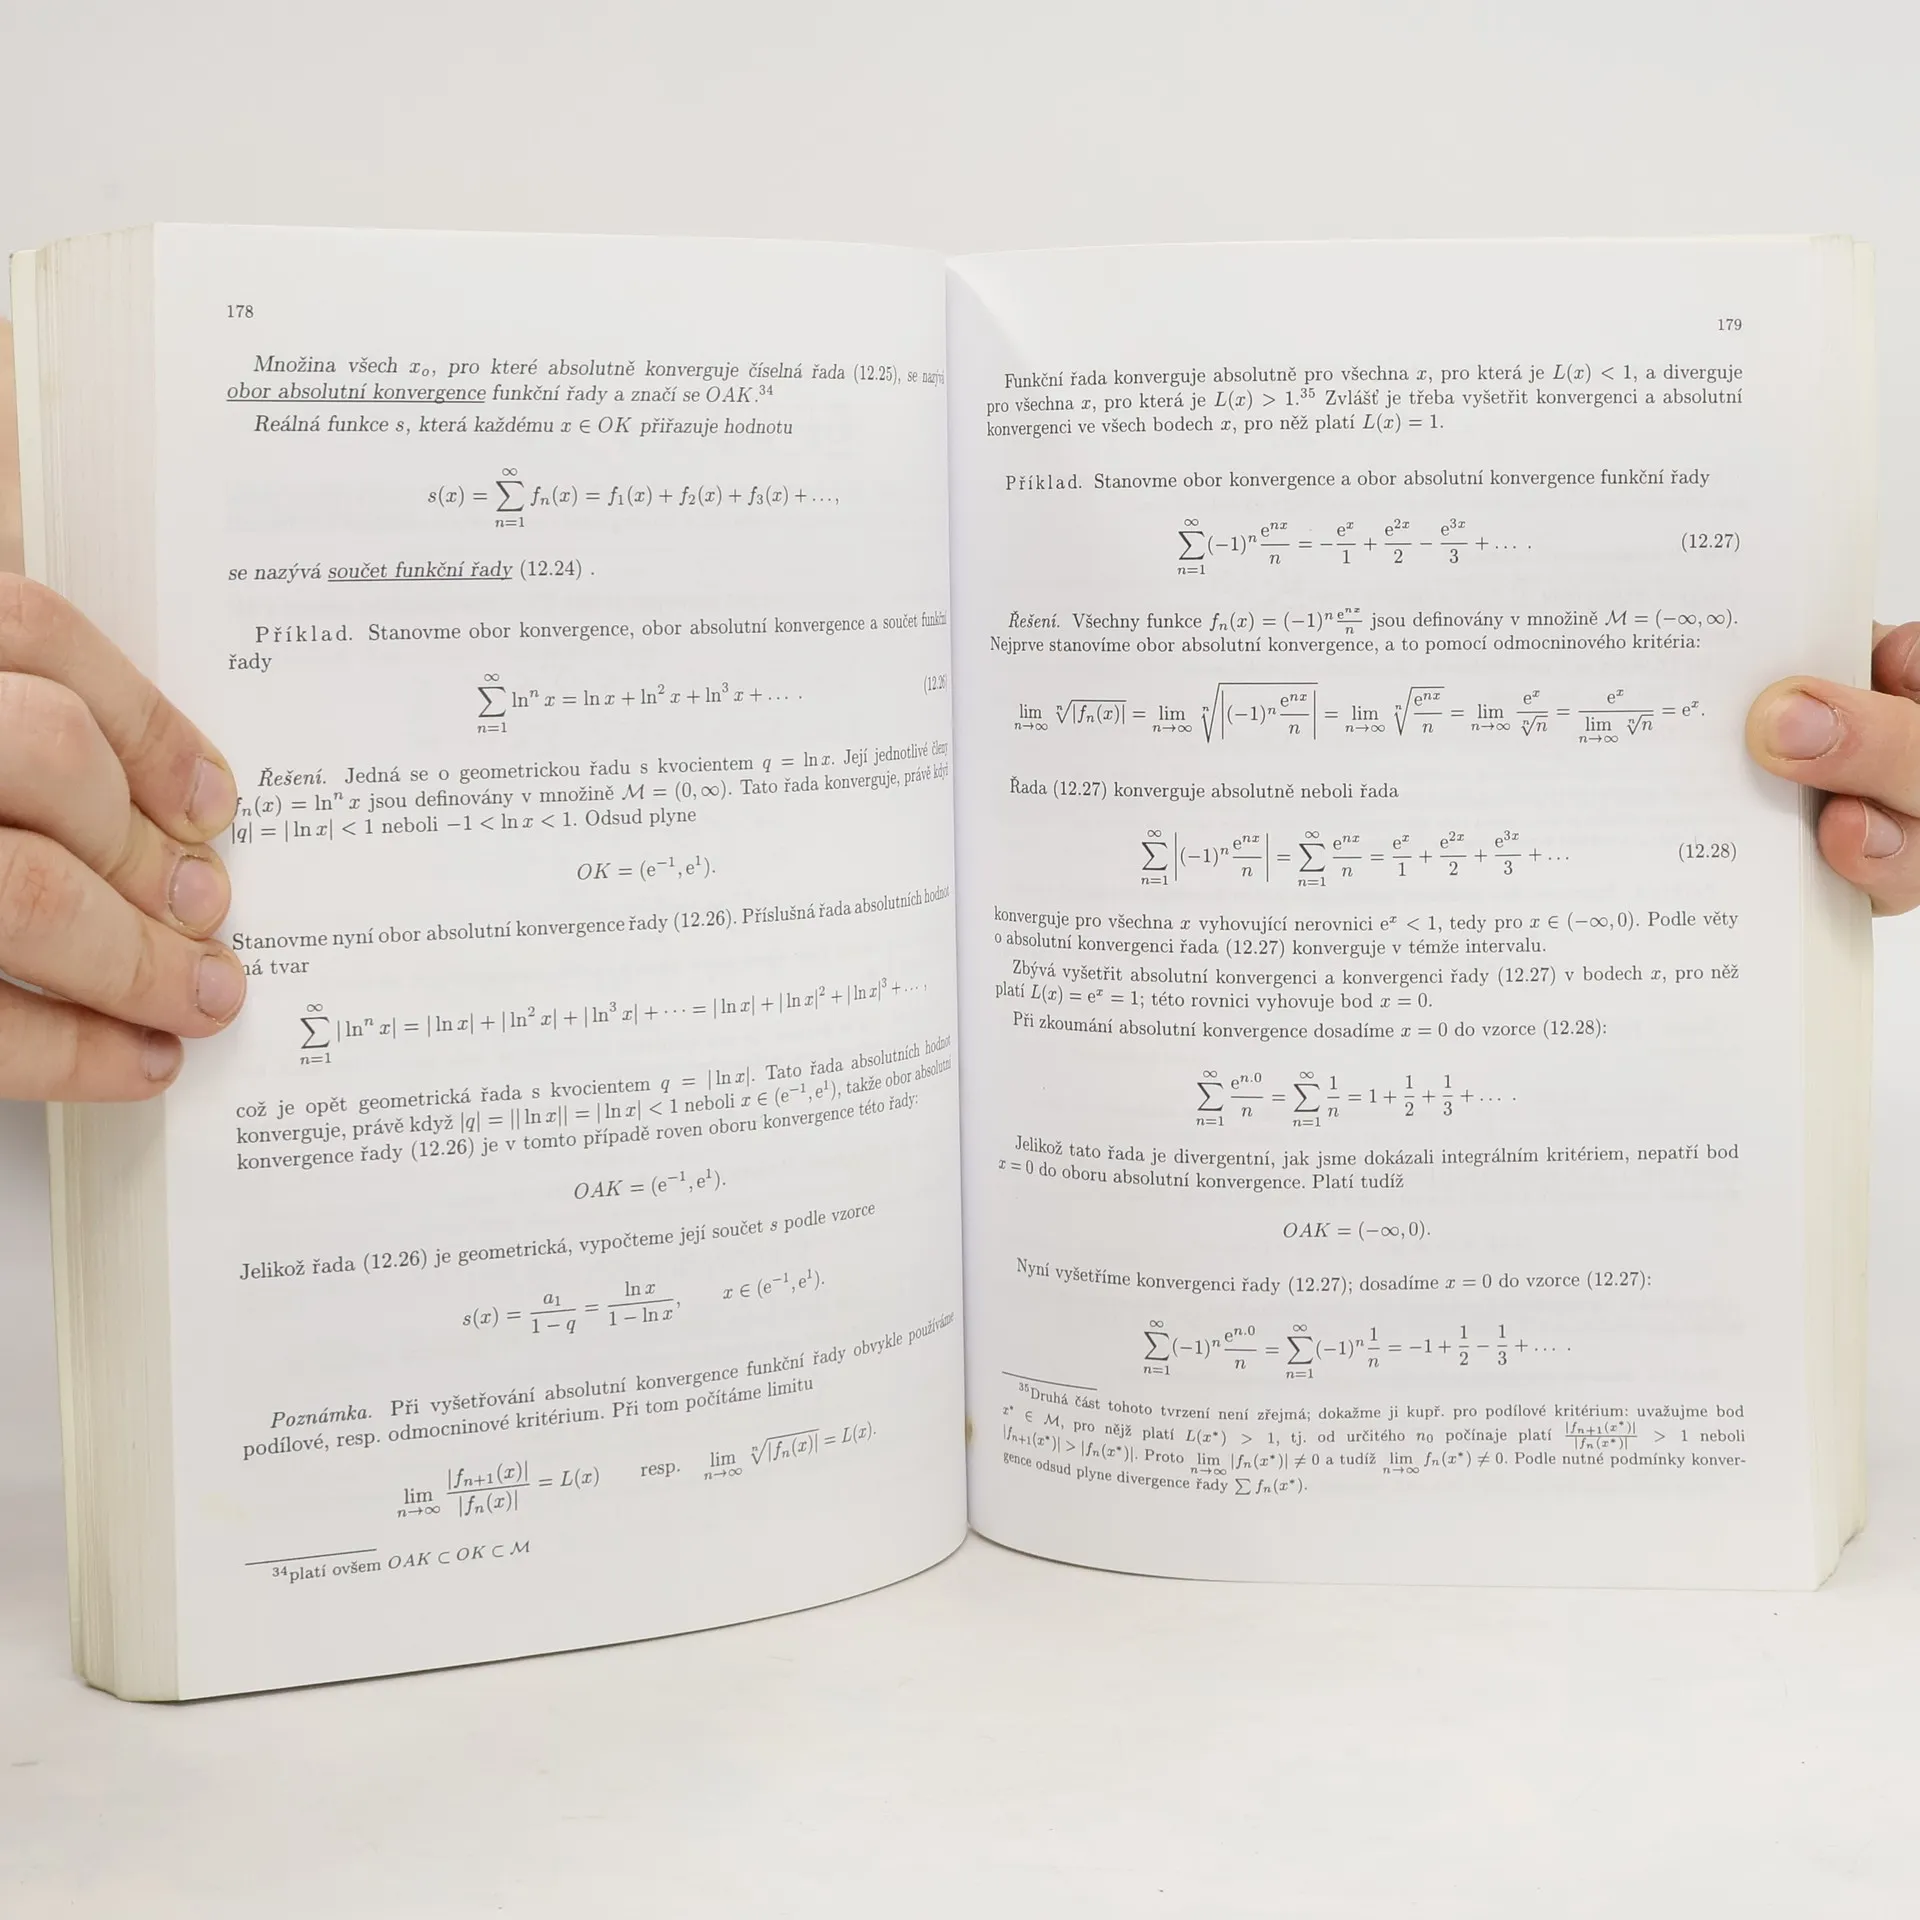 178
Množina všech x₀, pro které absolutně konverguje číselná řada (12.25), se nazývá
obor absolutní konvergence funkční řady a značí se OAK.³⁴
Reálná funkce s, která každému x ∈ OK přiřazuje hodnotu
s(x) = ∑_{n=1}^{∞} fₙ(x) = f₁(x) + f₂(x) + f₃(x) + …,
se nazývá součet funkční řady (12.24) .
Příklad. Stanovme obor konvergence, obor absolutní konvergence a součet funkční
řady
∑_{n=1}^{∞} lnⁿ x = ln x + ln² x + ln³ x + … . (12.26)
Řešení. Jedná se o geometrickou řadu s kvocientem q = ln x. Její jednotlivé členy
fₙ(x) = lnⁿ x jsou definovány v množině ℳ = (0, ∞). Tato řada konverguje, právě když
|q| = | ln x| < 1 neboli −1 < ln x < 1. Odsud plyne
OK = (e⁻¹, e¹).
Stanovme nyní obor absolutní konvergence řady (12.26). Příslušná řada absolutních hodnot
má tvar
∑_{n=1}^{∞} | lnⁿ x| = | ln x| + | ln² x| + | ln³ x| + ⋯ = | ln x| + | ln x|² + | ln x|³ + … ,
což je opět geometrická řada s kvocientem q = | ln x|. Tato řada absolutních hodnot
konverguje, právě když |q| = || ln x|| = | ln x| < 1 neboli x ∈ (e⁻¹, e¹), takže obor absolutní
konvergence řady (12.26) je v tomto případě roven oboru konvergence této řady:
OAK = (e⁻¹, e¹).
Jelikož řada (12.26) je geometrická, vypočteme její součet s podle vzorce
s(x) = a₁/(1 − q) = ln x/(1 − ln x), x ∈ (e⁻¹, e¹).
Poznámka. Při vyšetřování absolutní konvergence funkční řady obvykle používáme
podílové, resp. odmocninové kritérium. Při tom počítáme limitu
lim_{n→∞} |fₙ₊₁(x)|/|fₙ(x)| = L(x) resp. lim_{n→∞} ⁿ√|fₙ(x)| = L(x).
³⁴platí ovšem OAK ⊂ OK ⊂ ℳ
179
Funkční řada konverguje absolutně pro všechna x, pro která je L(x) < 1, a diverguje
pro všechna x, pro která je L(x) > 1.³⁵ Zvlášť je třeba vyšetřit konvergenci a absolutní
konvergenci ve všech bodech x, pro něž platí L(x) = 1.
Příklad. Stanovme obor konvergence a obor absolutní konvergence funkční řady
∑_{n=1}^{∞} (−1)ⁿ eⁿˣ/n = −eˣ/1 + e²ˣ/2 − e³ˣ/3 + … . (12.27)
Řešení. Všechny funkce fₙ(x) = (−1)ⁿ eⁿˣ/n jsou definovány v množině ℳ = (−∞, ∞).
Nejprve stanovíme obor absolutní konvergence, a to pomocí odmocninového kritéria:
lim_{n→∞} ⁿ√|fₙ(x)| = lim_{n→∞} ⁿ√|(−1)ⁿ eⁿˣ/n| = lim_{n→∞} ⁿ√(eⁿˣ/n) = lim_{n→∞} eˣ/ⁿ√n = eˣ/(lim_{n→∞} ⁿ√n) = eˣ.
Řada (12.27) konverguje absolutně neboli řada
∑_{n=1}^{∞} |(−1)ⁿ eⁿˣ/n| = ∑_{n=1}^{∞} eⁿˣ/n = eˣ/1 + e²ˣ/2 + e³ˣ/3 + … (12.28)
konverguje pro všechna x vyhovující nerovnici eˣ < 1, tedy pro x ∈ (−∞, 0). Podle věty
o absolutní konvergenci řada (12.27) konverguje v témže intervalu.
Zbývá vyšetřit absolutní konvergenci a konvergenci řady (12.27) v bodech x, pro něž
platí L(x) = eˣ = 1; této rovnici vyhovuje bod x = 0.
Při zkoumání absolutní konvergence dosadíme x = 0 do vzorce (12.28):
∑_{n=1}^{∞} eⁿ·⁰/n = ∑_{n=1}^{∞} 1/n = 1 + 1/2 + 1/3 + … .
Jelikož tato řada je divergentní, jak jsme dokázali integrálním kritériem, nepatří bod
x = 0 do oboru absolutní konvergence. Platí tudíž
OAK = (−∞, 0).
Nyní vyšetříme konvergenci řady (12.27); dosadíme x = 0 do vzorce (12.27):
∑_{n=1}^{∞} (−1)ⁿ eⁿ·⁰/n = ∑_{n=1}^{∞} (−1)ⁿ 1/n = −1 + 1/2 − 1/3 + … .
³⁵Druhá část tohoto tvrzení není zřejmá; dokažme ji kupř. pro podílové kritérium: uvažujme bod
x* ∈ ℳ, pro nějž platí L(x*) > 1, tj. od určitého n₀ počínaje platí |fₙ₊₁(x*)|/|fₙ(x*)| > 1 neboli
|fₙ₊₁(x*)| > |fₙ(x*)|. Proto lim_{n→∞} |fₙ(x*)| ≠ 0 a tudíž lim_{n→∞} fₙ(x*) ≠ 0. Podle nutné podmínky konver-
gence odsud plyne divergence řady ∑ fₙ(x*).